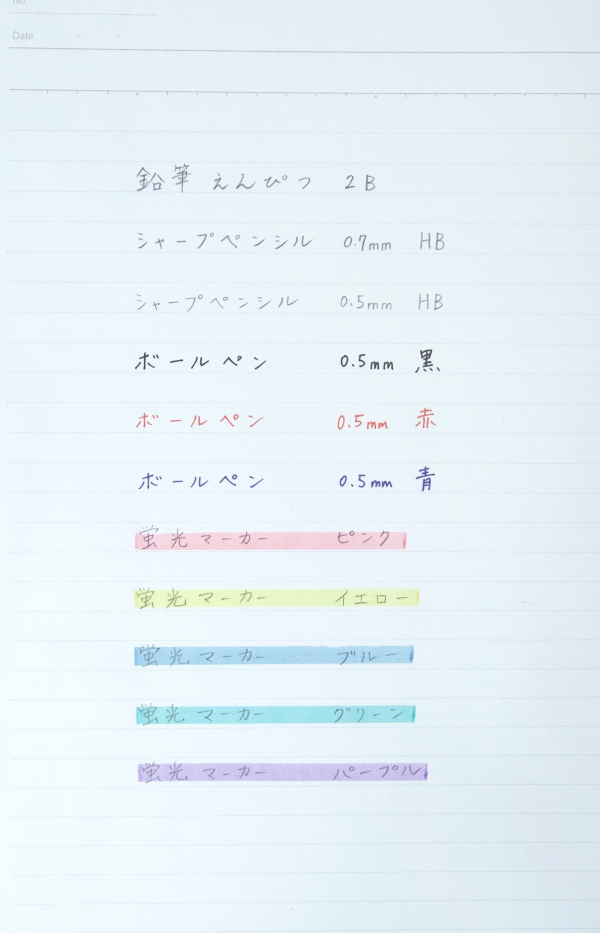 No.
Date
鉛筆 えんぴつ 2B
シャープペンシル 0.7mm HB
シャープペンシル 0.5mm HB
ボールペン 0.5mm 黒
ボールペン 0.5mm 赤
ボールペン 0.5mm 青
蛍光マーカー ピンク
蛍光マーカー イエロー
蛍光マーカー ブルー
蛍光マーカー グリーン
蛍光マーカー パープル